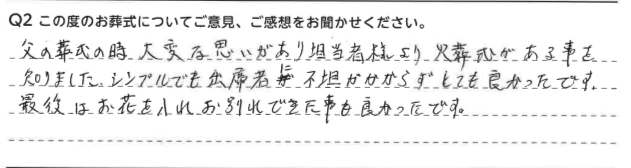 Q2 この度のお葬式についてご意見、ご感想をお聞かせください。
父の葬式の時 大変な思いがあり担当者様より 火葬式がある事を
知りました。シンプルでも出席者に 不担かかからずとても良かったです。
最後はお花を入れお別れできた事も良かったです。